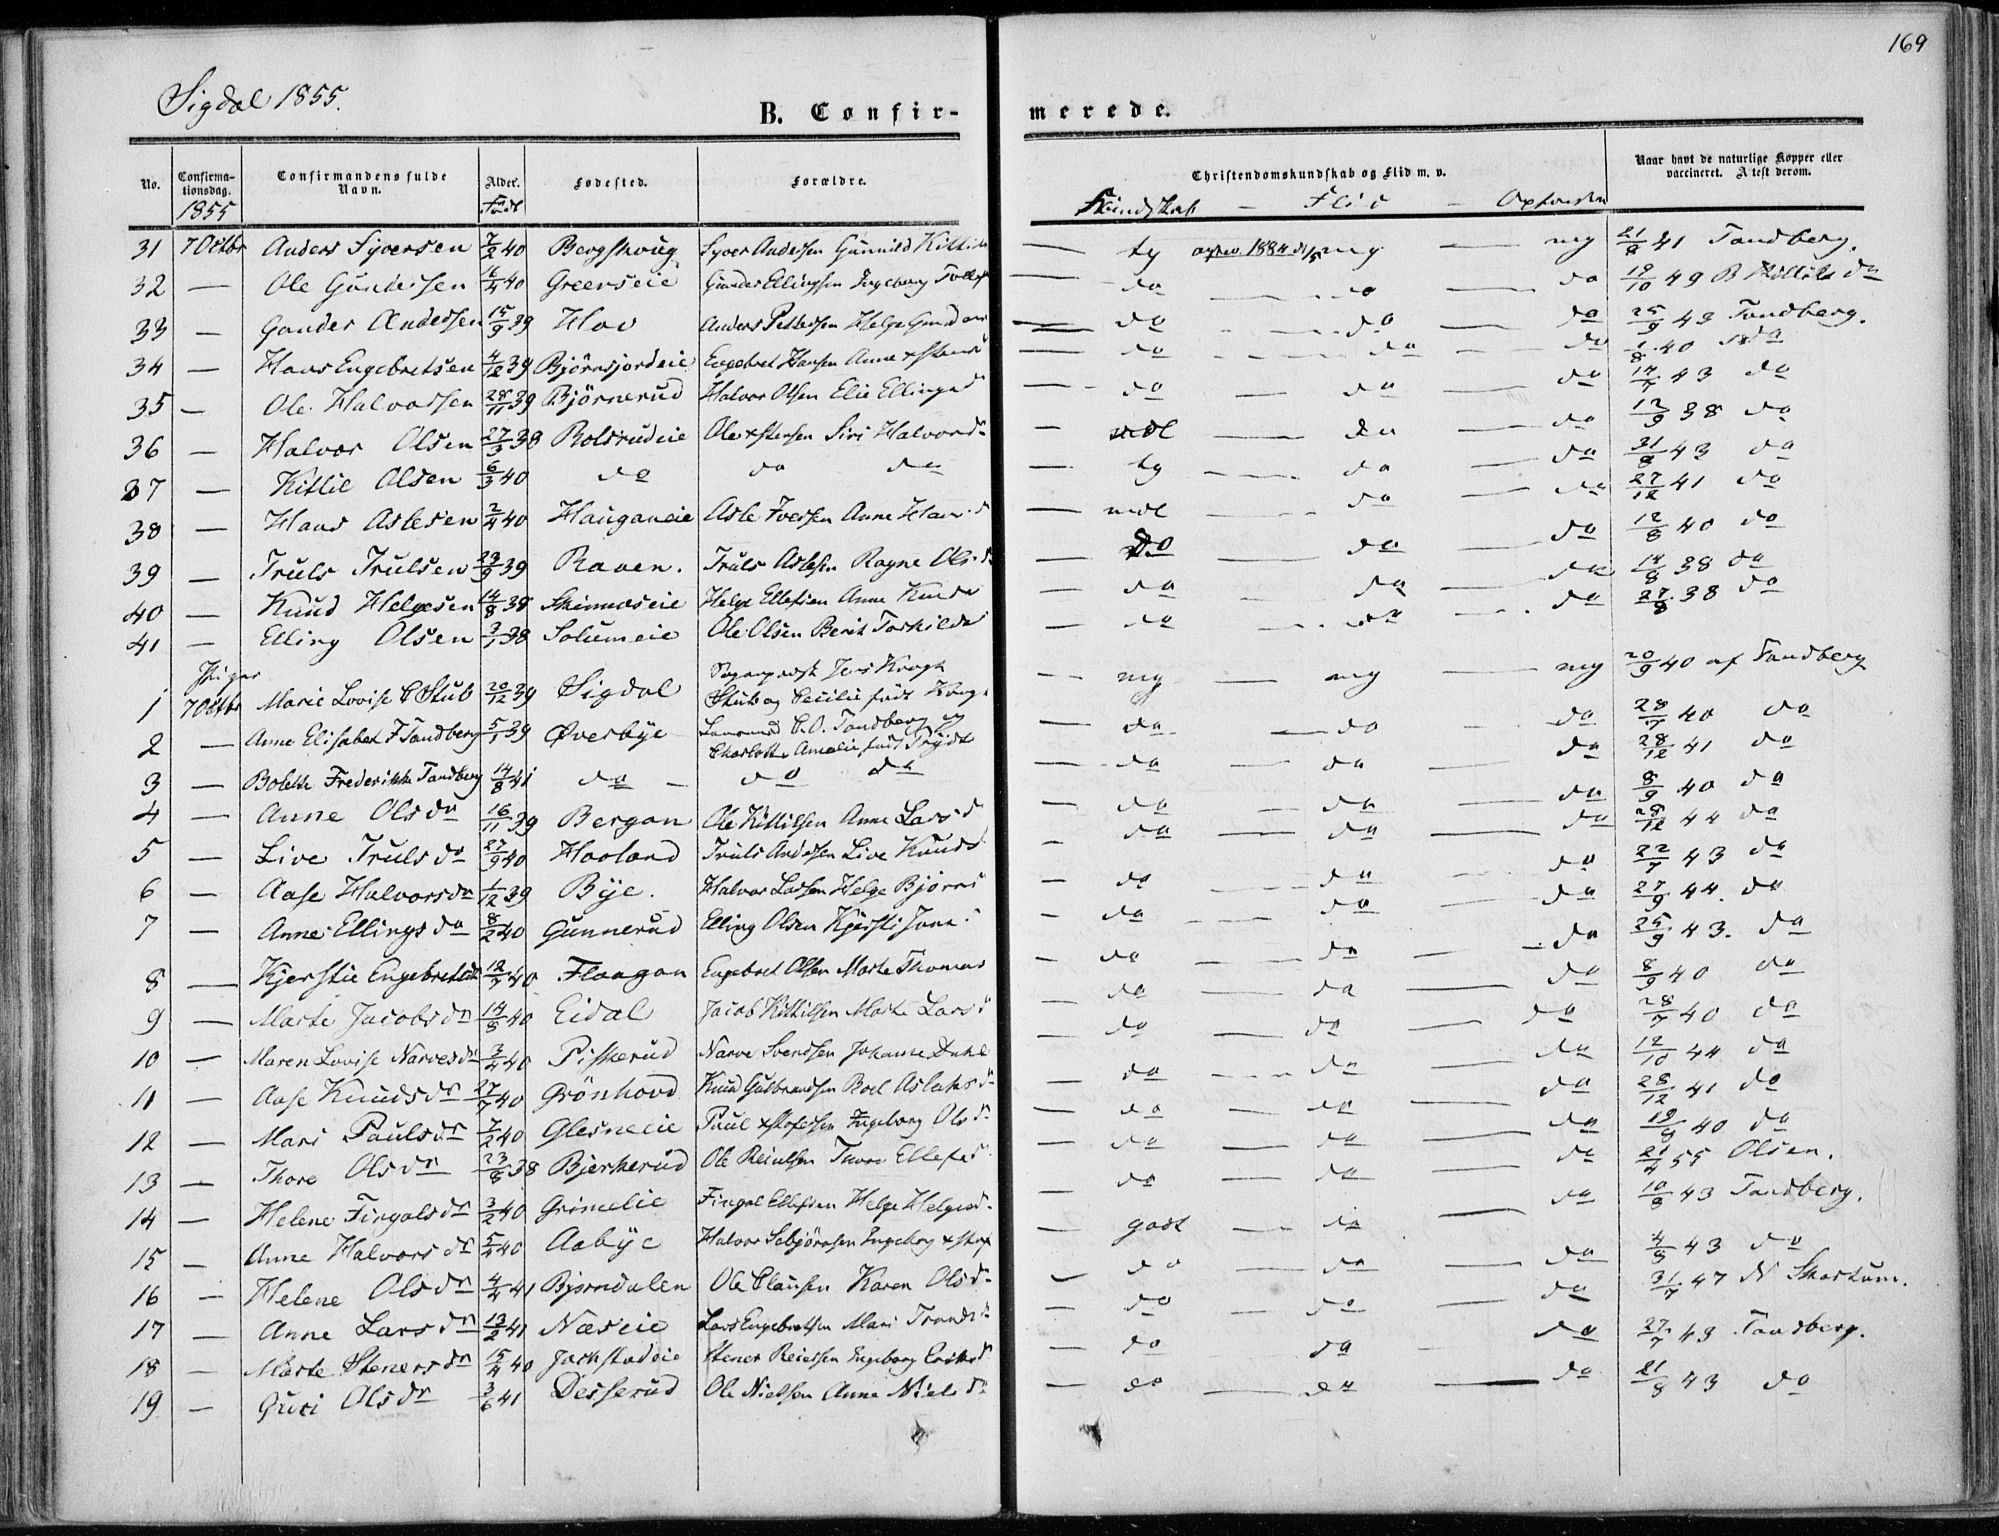 169
Sigdal 1855.
B. Confir- merede.
No. Confirmationsdag. 1855 Confirmandens fulde Navn. Alder. Født Fødested. Forældre. Christendomskundskab og Flid m. v. Kundskab - Flid - Opførsel Naar havt de naturlige Kopper eller vaccineret. Attest derom.
31 7 Octbr Anders Syversen 7/2 40 Bergskoug Syver Andersen Gunnild Kittils — tg 1884 mg — mg 21/8 41 Tandberg.
32 — Ole Gundersen 16/4 40 Greerseie Gunder Ellingsen Ingeborg — do — do — do 19/10 49
33 — Gunder Andersen 15/9 39 Hov Anders Pettersen Helge — do — do — do 25/9 43 Tandberg.
34 — Hans Engebretsen 4/12 39 Bjørnsjordeie Engebret Hansen Anne — do — do — do 1/8 40 do
35 — Ole Halvorsen 28/11 39 Bjørnerud Halvor Olsen Elie Ellingsd — do — do — do 14/7 43 do
36 — Halvor Olsen 27/3 38 Bolsrudeie Ole Siri Halvorsd — mdl — do — do 12/9 38 do
37 — Kittil Olsen 6/3 40 do do do — tg — do — do 31/8 43 do
38 — Hans Aslesen 2/4 40 Hauganeie Asle Iversen Anne — mdl — do — do 27/12 41 do
39 — Truls Trulsen 23/9 39 Raaen. Truls Aslesen Ragne Olsd — do — do — do 12/8 40 do
40 — Knud Helgesen 14/8 38 Skinneseie Helge Ellefsen Anne Knudsd — do — do — do 14/8 38 do
41 — Elling Olsen 3/1 38 Solumeie Ole Olsen Berit Torkilds — do — do — do 27/8 38 do
Piger
1 7 Octbr Marie Lovise C Stub 20/12 39 Sigdal Sogneprest Jens Kragh Stub og Cecilie født Kragh — mg — mg — mg 20/9 40 af Tandberg
2 — Anne Elisabet F Tandberg 5/1 39 Øverbye Lensmand C. O. Tandberg og Charlotte Amalie født Trydt — do — do — do 28/7 40 do
3 — Bolette Frederikke Tandberg 14/8 41 do — do do — do — do — do 28/12 41 do
4 — Anne Olsdr 16/11 39 Bergan Ole Kittilsen Anne Larsd — do — do — do 8/9 40 do
5 — Live Trulsdr 27/9 40 Haaland Truls Andersen Live Knuds — do — do — do 28/12 44 do
6 — Aase Halvorsdr 1/12 39 Bye. Halvor Larsen Helge Bjørns — do — do — do 22/7 43 do
7 — Anne Ellingsdr 8/2 40 Gunnerud Elling Olsen Kjersti — do — do — do 27/9 44. do
8 — Kjerstie Engebretsdr 12/4 40 Flaagan Engebret Olsen Marte Thomas — do — do — do 25/9 43. do
9 — Marte Jacobsdr 14/8 40 Eidal Jacob Kittilsen Marte Lars — do — do — do 8/9 40 do
10 — Maren Lovise Narvesdr 3/4 40 Piskerud Narve Svendsen Johanne — do — do — do 28/7 40 do
11 — Aase Knudsdr 27/7 40 Grønhovd Knud Gulbrandsen Boel Aslaksd — do — do — do 12/10 44 do
12 — Mari Paulsdr 7/2 40 Glesneeie Paul Ingeborg Olsd — do — do — do 28/12 41 do
13 — Thore Olsdr 23/8 38 Bjerkerud Ole Reiersen Thore Ellefsd — do — do — do 19/8 40 do
14 — Helene Fingalsdr 3/2 40 Grimelie Fingal Ellefsen Helge Helgesd — do — do — do 21/4 55 Olsen.
15 — Anne Halvorsdr 5/4 40 Aabye Halvor Sebjørnsen Ingeborg — godt — do — do 10/8 43 Tandberg.
16 — Helene Olsdr 4/4 41 Bjørndalen Ole Clausen Karen Olsd — do — do — do 4/9 43 do
17 — Anne Larsdr 13/2 41 Næseie Lars Engebretsen Mari Tronds — do — do — do 31/7 47 N Skartum.
18 — Marte Stenersdr 15/4 40 Jokstadeie Stener Reiersen Ingeborg Eriksd — do — do — do 27/7 43 Tandberg.
19 — Guri Olsdr 3/6 41 Desserud Ole Nielsen Anne Nielsd — do — do — do 21/8 43 do